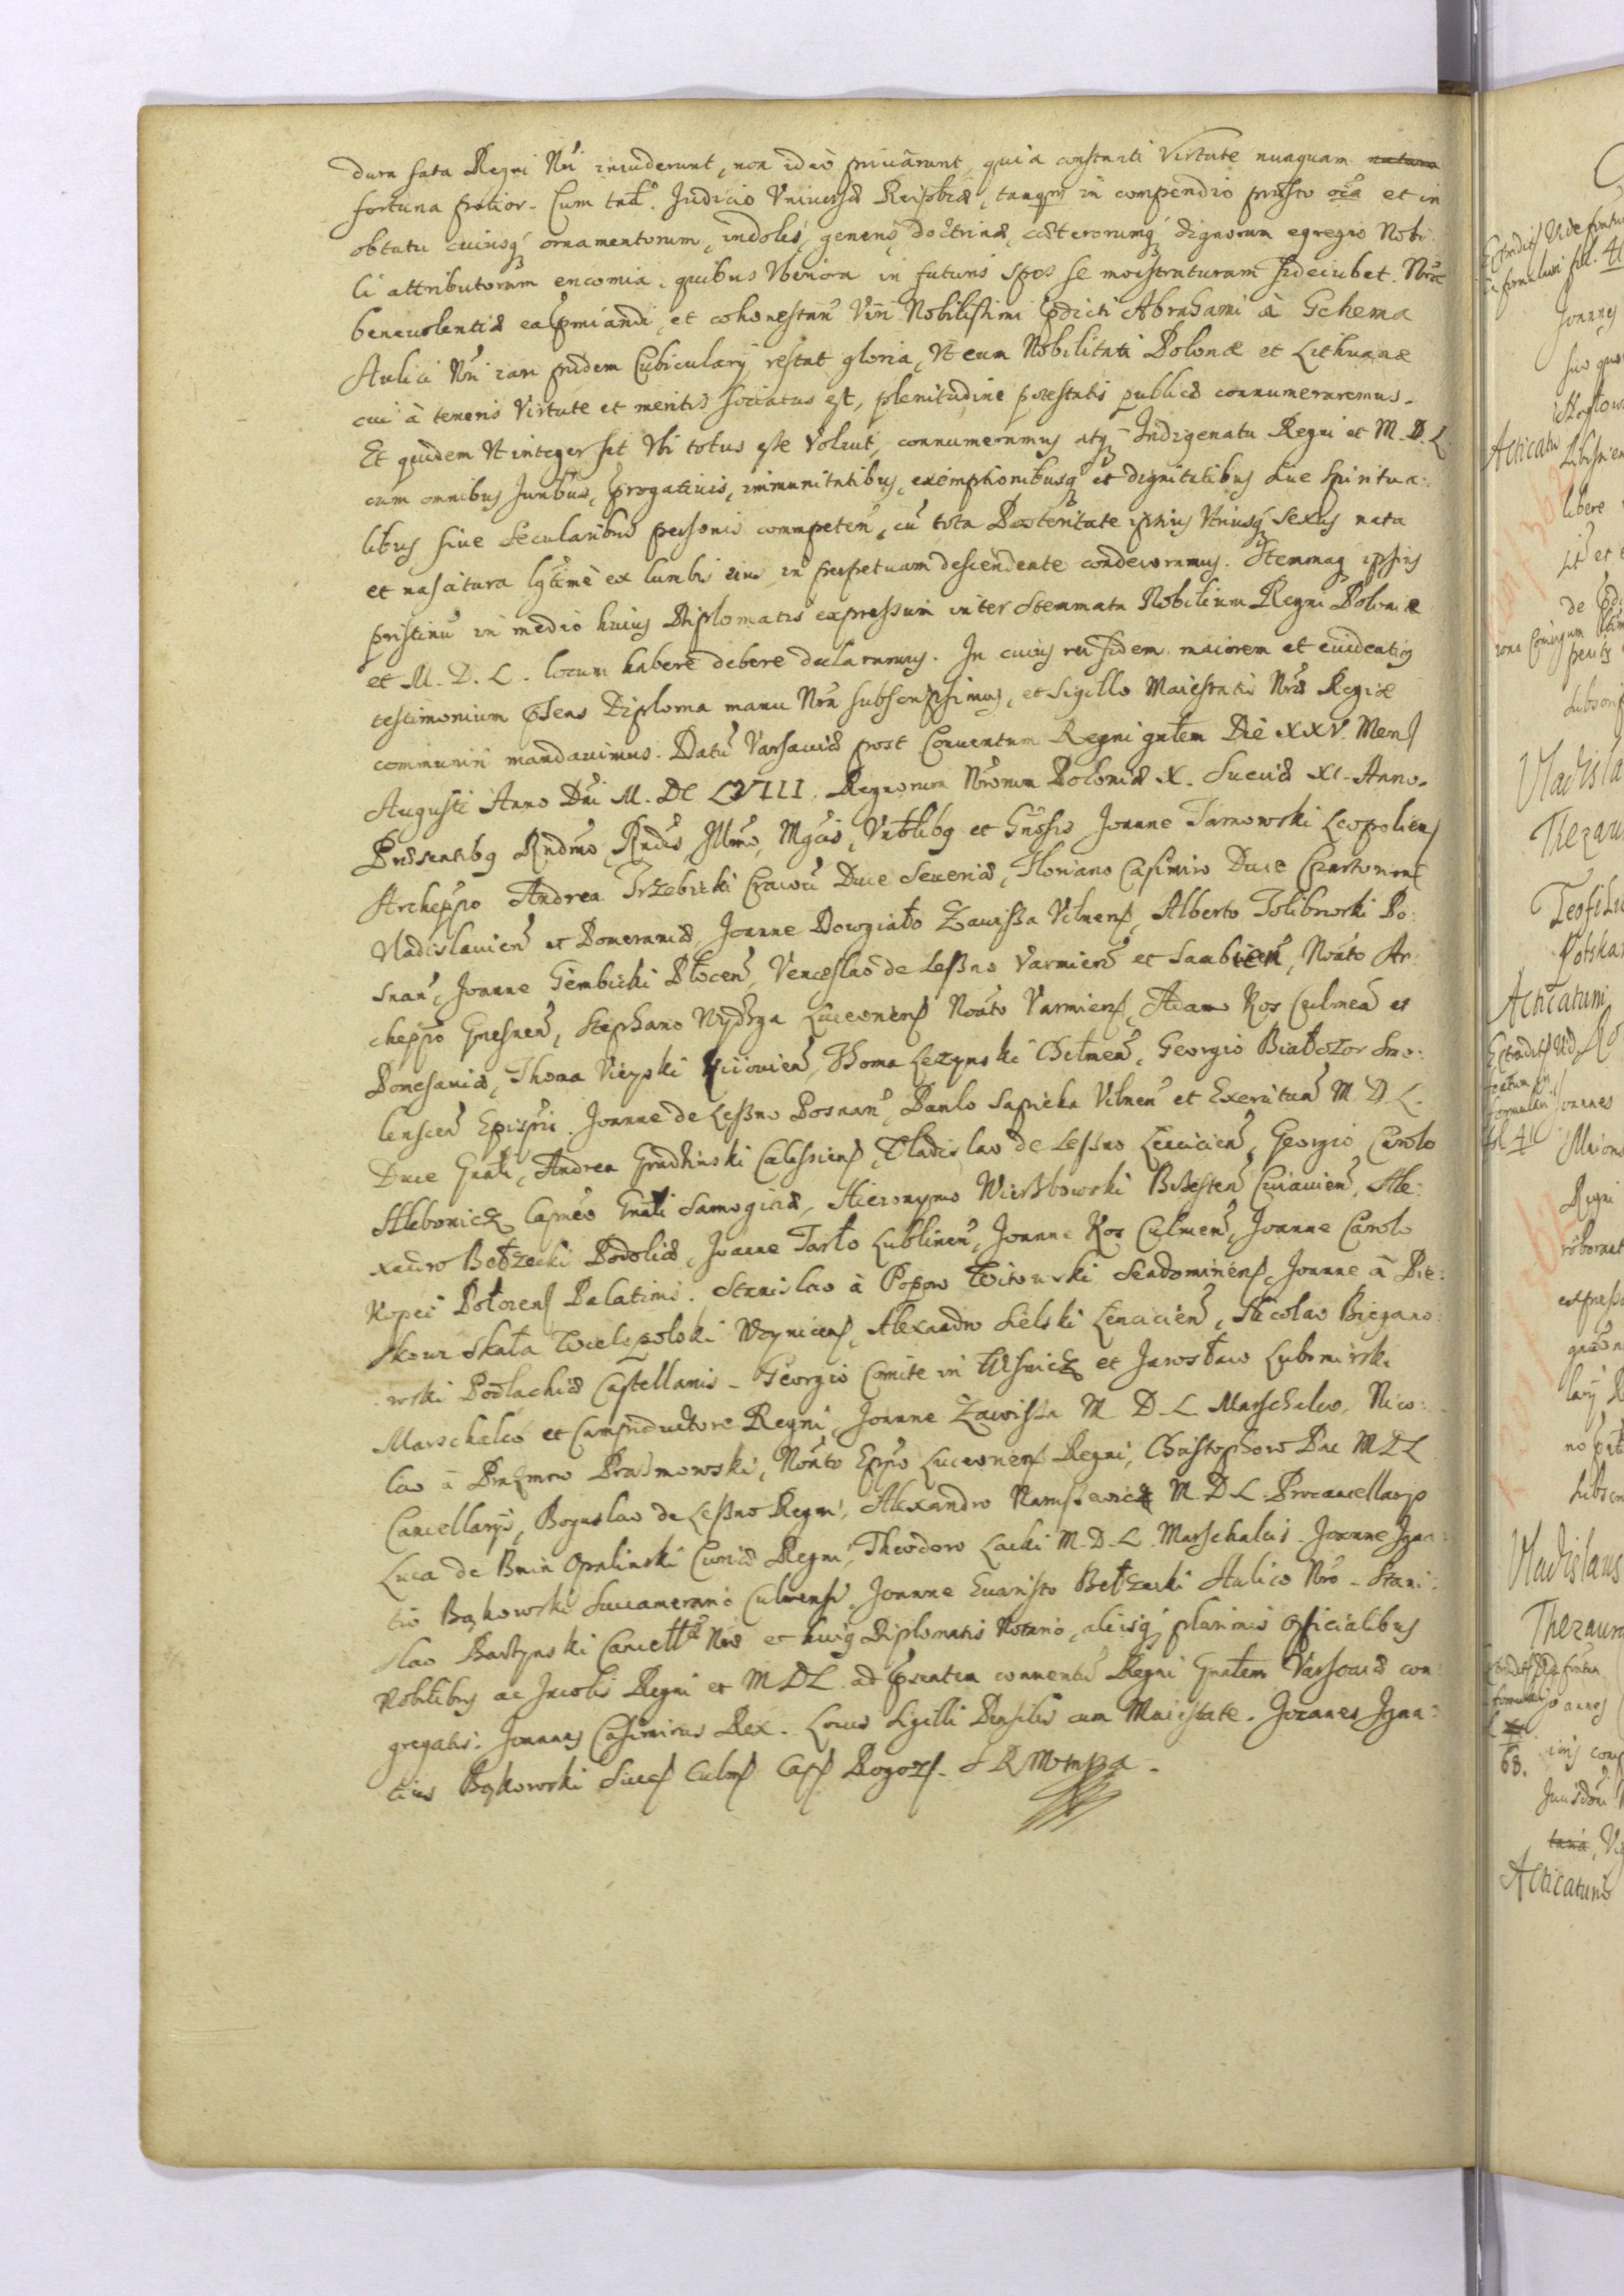 dura fata Regni Nri inviderunt, non ideo privarunt, quia constanti Virtute nunquam natura
fortuna potior. Cum Judicio Universæ Reipbcæ, tanqm in compendio præsto oia et in
obtutu cuiusq ornamentorum, indolis, generis, doctrinæ, cæterorumq dignorum egregio Nobi:
li attributorum encomia, quibus Uberiora in futuris Spes se monstraturam fideiubet. Nræ
benevolentiæ ea præmiandi, et cohonestan Viri Nobilissimi pdicti Abrahami à Gehema
Aulici Nri iam pridem Cubicularij restat gloria, Ut eum Nobilitati Polonæ et Lithuanæ
cui à teneris Virtute et meritis sociatus est, plenitudine potestatis publicæ connumeraremus.
Et quidem Ut integer sit Ubi totus esse Voluit, connumeramus atq Indigenatu Regni et M. D. L.
cum omnibus Juribus, Prærogativis, immunitatibus, exemptionibusq et dignitatibus sive Spiritua:
libus sive Secularibus personis commpeten, cu tota Posteritate ipsius Utriusq Sexus nata
et nascitura lgtime ex lumbis eius in perpetuum descendente condecoramus. Stemmaq ipsius
pristinu in medio huius Diplomatis expressum inter Stemmata Nobilium Regni Poloniæ
et M. D. L. locum habere debere declaramus. In cuius rei fidem maiorem et evidentius
testimonium psens Diploma manu Nra subscripsimus, et Sigillo Maiestatis Nræ Regiæ
communiri mandavimus. Datu Varsaviæ post Conventum Regni gnlem Die XXV. Mens
Augusti Anno Dni M. DC LVIII. Regnorum Nrorum Poloniæ X. Sueciæ XI. Anno.
Præsentibq Rndmo, Rndis, Illmo, Mgcis, Vrblibq et Gnsis Joanne Tarnowski Leopoliens
Archeppo Andrea Trzebicki Cracov Duce Severiæ, Floriano Casimiro Duce Czartoriens
Vladislavien et Pomeraniæ, Joanne Dowgiałło Zawissa Vilnens, Alberto Tolibowski Po:
snan, Joanne Gembicki Płocen, Venceslao de Leszno Varmien et Sambien, Noato Ar:
cheppo Gnesnen, Stephano Wydzga Luceoriens Noato Varmiens, Adamo Kos Culmen et
Pomesaniæ, Thoma Vieyski Kiiovien, Thoma Lezynski Chełmen, Georgio Białłozor Smo:
lenscen Episcpis. Joanne de Leszno Posnan, Paulo Sapieha Vilnen et Exercituu M D L.
Duce Gnali, Andrea Grudzinski Calissiens, Vladislao de Leszno Lencicien, Georgio Carolo
Hlebowicz Capneo Gnali Samogitiæ, Hieronymo Wierzbowski Brzesten Cuiavien, Ale:
xandro Bełzecki Podoliæ, Joanne Tarło Lublinen, Joanne Kos Culmen, Joanne Carolo
Kopeć Połocens Palatinis. Stanislao à Popow Witowski Sendomirens, Joanne à Pie:
skowa Skała Wielepolski Woynicens, Alexandro Sielski Lencicien, Nicolao Biegano:
wski Podlachiæ Castellanis. Georgio Comite in Wisnicz et Jarosław Lubomirski
Marschalco et Campiductore Regni, Joanne Zawissa M D L Marschalco, Nico:
lao à Prażmow Prażmowski, Noato Eppo Luceoriens Regni, Christophoro Pac M D L
Cancellarijs, Boguslao de Leszno Regni, Alexandro Naruszewicz M. D. L. Procancellarijs
Luca de Bnin Opalinski Curiæ Regni, Theodoro Lacki M. D. L. Marschalcis. Joanne Igna:
tio Bąkowski Succamerario Culmensi, Joanne Evaristo Bełzecki Aulico Nro. Stani:
slao Bartynski Cancell Nro et huiq Diplomatis Notario, aliisq plurimis Officialibus
Nobilibus ac Incolis Regni et M D L ad psentem conventu Regni Gnalem Varsoviæ con:
gregatis. Joannes Casimirus Rex. Locus Sigilli Pensilis cum Maiestate. Joannes Igna:
tius Bąkowski Succ Culms Cap Rogoz.
Joannes
Acticatu
libere
Vladisla
Thezau
Teofilu
Potska
Acticatum
fol 41
Regni
Vladislaus
Thezaur
68.
Acticatum